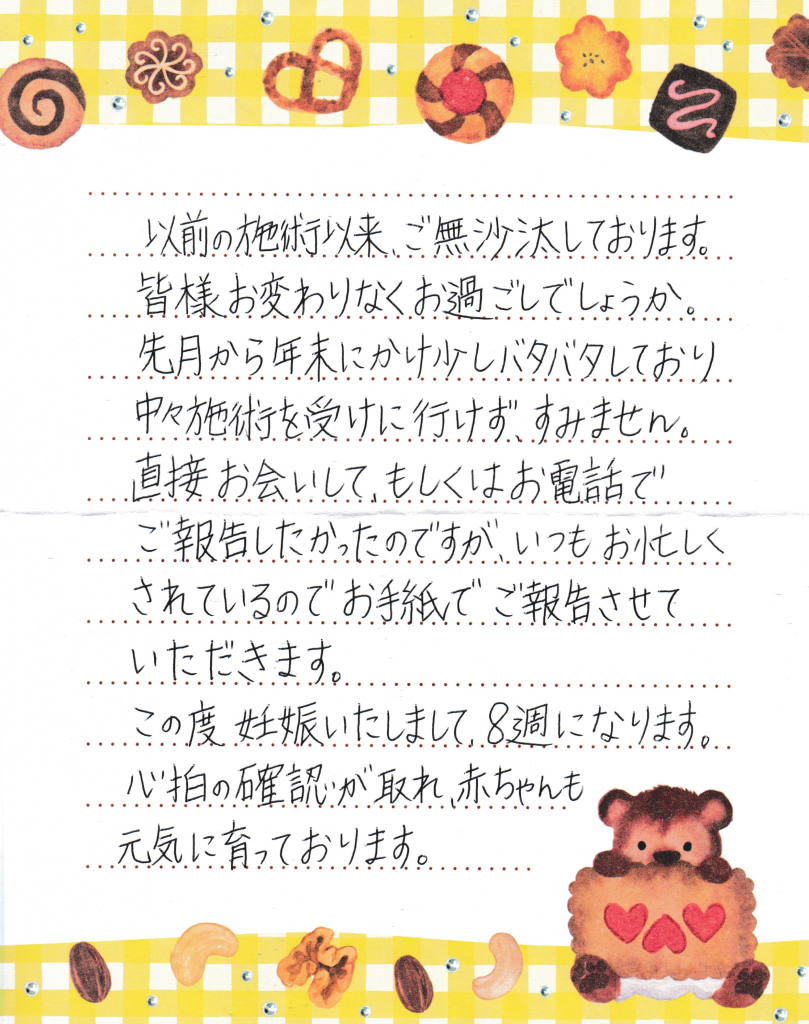 以前の施術以来、ご無沙汰しております。
皆様お変わりなくお過ごしでしょうか。
先月から年末にかけ少しバタバタしており
中々施術を受けに行けず、すみません。
直接お会いして、もしくはお電話で
ご報告したかったのですが、いつもお忙しく
されているのでお手紙でご報告させて
いただきます。
この度妊娠いたしまして、8週になります。
心拍の確認が取れ、赤ちゃんも
元気に育っております。